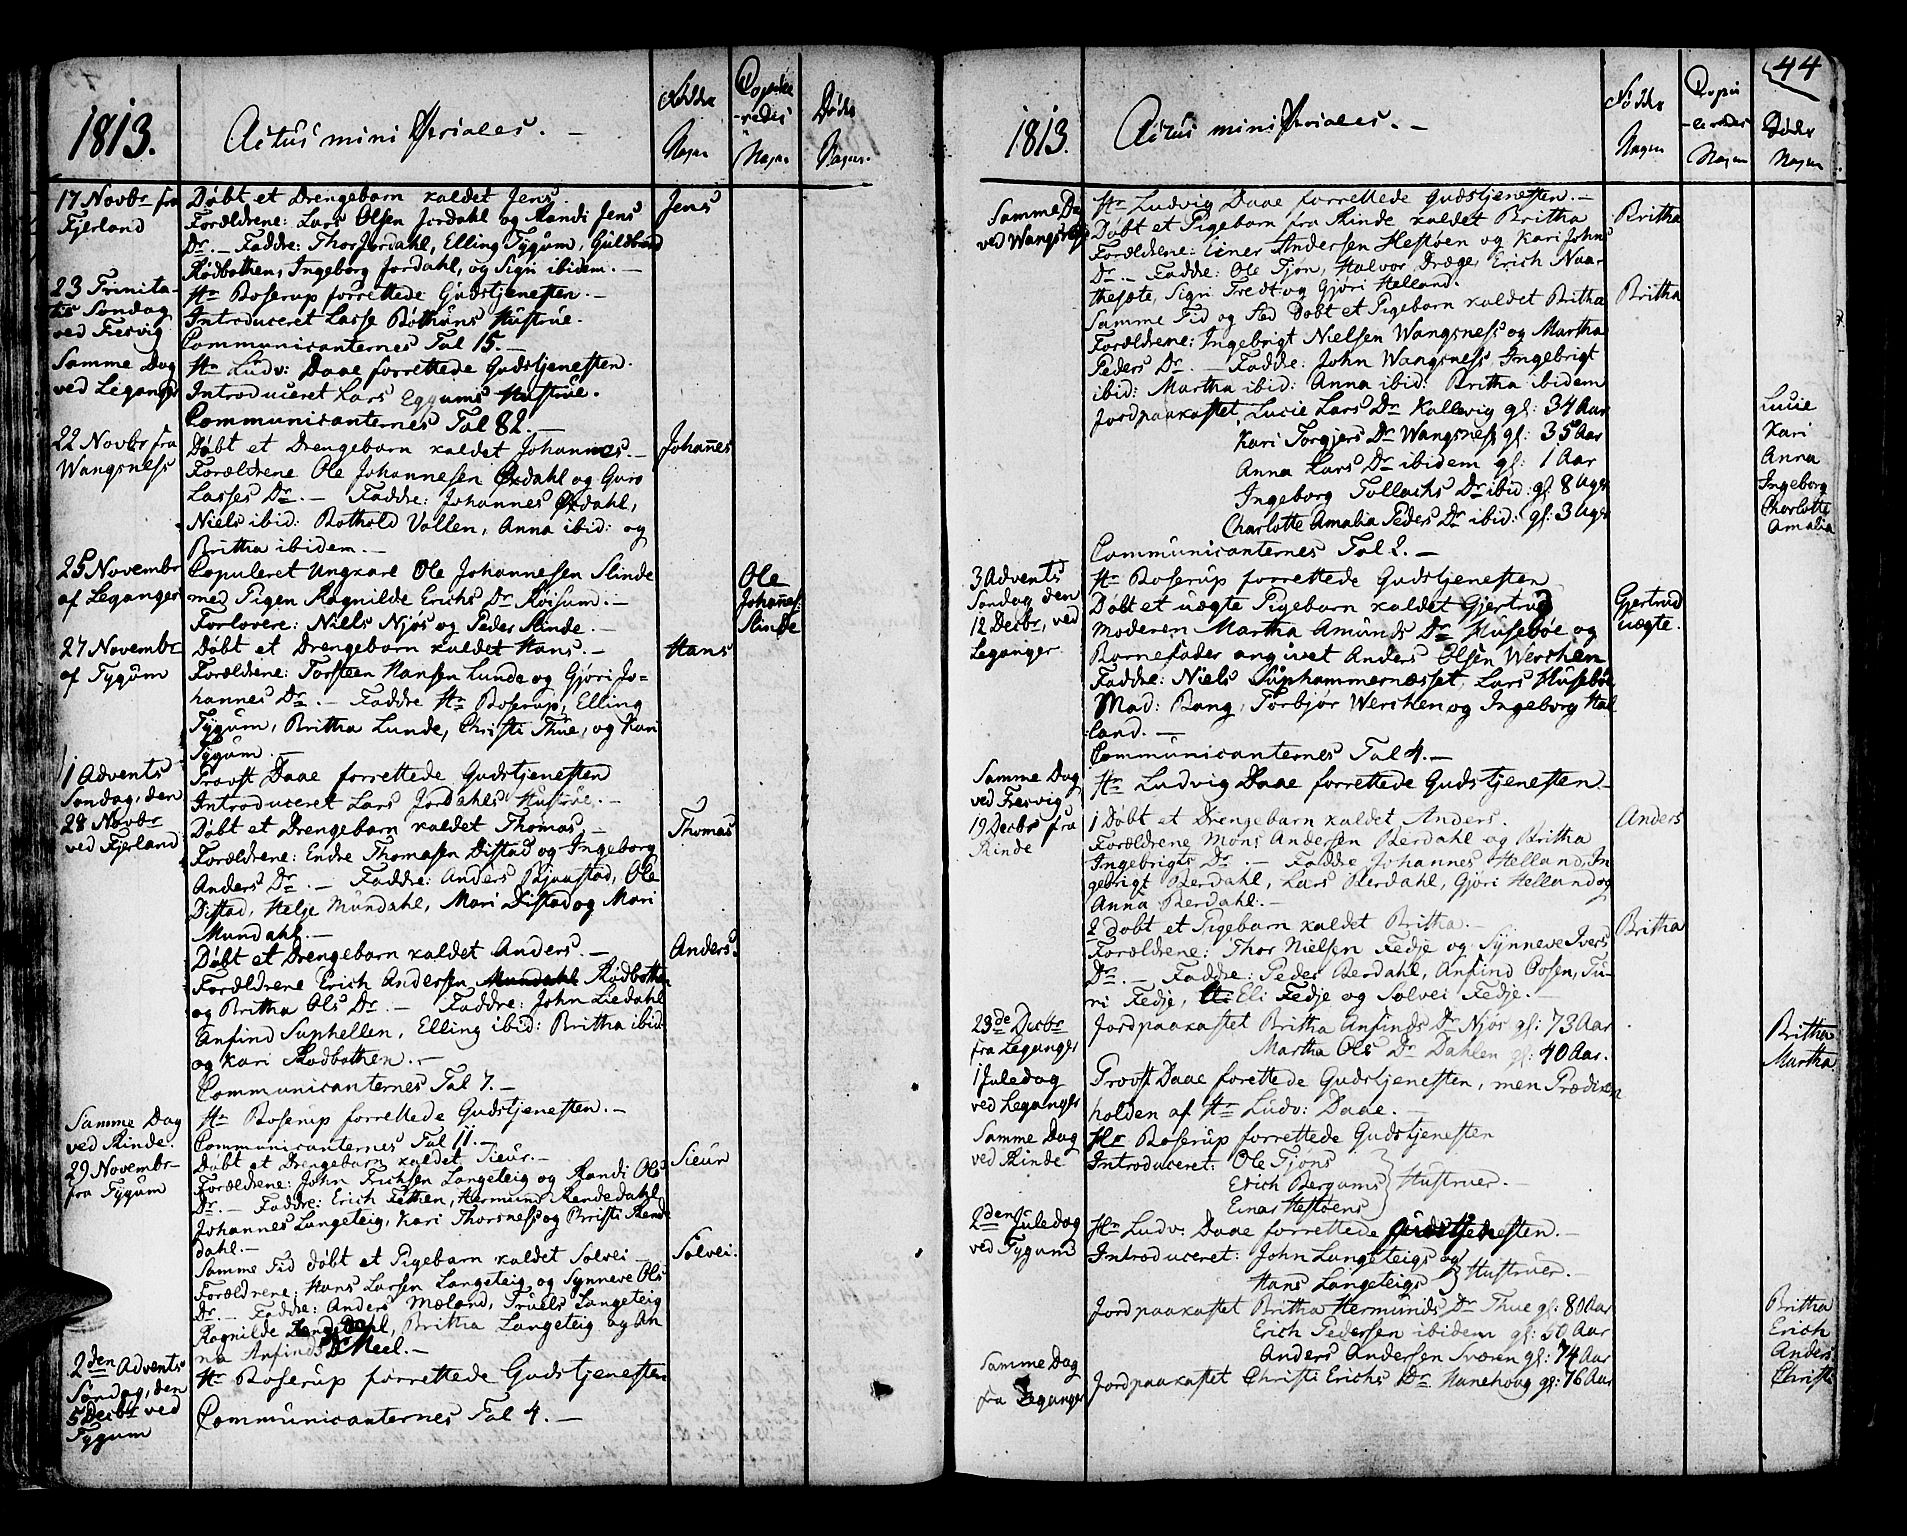 1813.
Actus ministeriales. —
Fødde Nagn
Copule-redes Nagn
Døde Nagn.
17 Novbr fra
Fjerland
Døbt et Drengebarn kaldet Jens.
Forældrene: Lars Olsen Jordahl og Randi Jens
Dr. — Faddre: Thor Jordahl, Elling Tygum, Guldbrand
Rødbotten, Ingeborg Jordahl, og Sigri ibidem. —
Jens
23 Trinita-
tis Søndag
ved Fresvig
Hr Boserup forrettede Gudstjenesten. —
Introduceret Lasse Bøthuns Hustrue.
Communicanternes Tal 15. —
Samme Dag
ved Leganger
Hr Ludv: Daae forrettede Gudstjenesten.
Introduceret Lars Eggums Hustrue.
Communicanternes Tal 82. —
22 Novbr fra
Wangsness
Døbt et Drengebarn kaldet Johannes. —
Forældrene Ole Johannesen Ørdahl og Guro
Lasses Dr. — Faddre: Johannes Ørdahl,
Niels ibid: Bothold Vallen, Anna ibid: og
Britha ibidem. —
Johannes
25 Novembr
af Leganger
Copuleret Ungkarl Ole Johannesen Slinde
med Pigen Ragnilde Erichs Dr Røisum. —
Forlovere: Niels Njøs og Peder Slinde. —
Ole
Johannes:
Slinde
27 Novembr
af Tygum
Døbt et Drengebarn kaldet Hans. —
Forældrene: Torsteen Hansen Lunde og Gjøri Jo-
hannes Dr. — Faddre Hr Boserup, Elling
Tygum, Britha Lunde, Christi Thue, og Kari
Tygum. —
Hans
1 Advents
Søndag, den
28 Novbr
ved Fjerland
Provst Daae forrettede Gudstjenesten
Introduceret Lars Jordahls Hustrue. —
Døbt et Drengebarn kaldet Thomas —
Forældrene: Endre Thomasen Distad og Ingeborg
Anders Dr. — Faddre: Anders Bjaastad, Ole
Distad, Helje Mundahl, Mari Distad og Mari
Mundahl. —
Thomas
Døbt et Drengebarn kaldet Anders. —
Forældrene Erich Andersen Mundahl Rødbotten
og Britha Ols Dr. — Faddre: John Liedahl
Anfind Suphellen, Elling ibid: Britha ibid
og Kari Rødbotten. —
Communicanternes Tal 7. —
Anders.
Samme Dag
ved Rinde.
Hr Boserup forrettede Gudstjenesten. —
Communicanternes Tal 11. —
29 Novembr
fra Tygum
Døbt et Drengebarn kaldet Sieur. —
Forældrene: John Erichsen Langeteig og Randi Ols
Dr. — Faddre: Erich Fetten, Hermund Rendedahl
Johannes Langeteig, Kari Thorsness og Christi Rende
dahl. —
Sieur
Samme Tid døbt et Pigebarn kaldet Solvei —
Forældrene: Hans Larsen Langeteig og Synneve Ols
Dr — Faddre: Anders Mæland, Truels Langeteig
Ragnilde Rendedahl, Britha Langeteig og An
na Anfinds Dr Neel. —
Solvei.
2den Advents
Søndag, den
5 Decbr ved
Tygum
Hr Boserup forrettede Gudstjenesten
Communicanternes Tal 4. —
44
1813.
Actus ministeriales. —
Fødde Nagn
Copu-leredes Nagn
Døde Nagn
Samme Dag
ved Wangsness
Hr Ludvig Daae forrettede Gudstjenesten. —
Døbt et Pigebarn fra Rinde kaldet Britha
Forældrene: Einer Andersen Hestøen og Kari Johns
Dr. — Fadde: Ole Tjøn, Halvor Dræge, Erich Naar
thesæte, Sigri Tredt og Gjøri Helland.
Britha
Samme Tid og Sted døbt et Pigebarn kaldet Britha
Forældrene: Ingebrigt Nielsen Wangsness og Martha
Peders Dr. — Fadde: John Wangsness Ingebrigt
ibid: Martha ibid: Anna ibid: Britha ibidem
Britha
Jordpaakastet Lucie Lars Dr Kallevig gl: 34 Aar
Kari Torgjers Dr Wangsness gl: 35 Aar
Anna Lars Dr ibidem gl: 1 Aar
Ingeborg Tollachs Dr ibid: gl 8 Uger
Charlotte Amalia Peders Dr ibid: gl: 3 Uger
Lucie
Kari
Anna
Ingeborg
Charlotte
Amalia
Communicanternes Tal 2. —
3 Advents
Søndag den
12 Decbr, ved
Leganger
Hr Boserup forrettede Gudstjenesten
Døbt et uægte Pigebarn kaldet Gjertrud
Moderen Martha Amunds Dr Husebøe og
Barnefader angivet Anders Olsen Werchen
Faddre: Niels Suphammernæsset, Lars Husebøe
Mad: Bang, Torbjør Werchen og Ingeborg Hal
land. —
Communicanternes Tal 4. —
Gjertrud
uægte.
Samme Dag
ved Fresvig
Hr Ludvig Daae forrettede Gudstjenesten —
19 Decbr fra
Rinde
1 Døbt et Drengebarn kaldet Anders.
Forældrene Mons Andersen Berdahl og Britha
Ingebrigts Dr. — Faddre Johannes Helland, In
gebrigt Berdahl, Lars Berdahl, Gjøri Helland og
Anna Berdahl. —
Anders
2 døbt et Pigebarn kaldet Britha. —
Forældrene: Thor Nielsen Fedje og Synneve Ivers
Dr. — Faddre: Peder Berdahl, Anfind Bosen, Tu-
ri Fedje, Eli Fedje og Solvei Fedje. —
Britha
23de Decbr
fra Leganger
Jordpaakastet Britha Anfinds Dr Njøs gl: 73 Aar
Martha Ols Dr Dahlen gl: 40 Aar.
Britha
Martha
1 Juledag
ved Leganger
Provst Daae forettede Gudstjenesten, men Prædiken
holden af Hr Ludv: Daae. —
Samme Dag
ved Rinde
Hr Boserup forrettede Gudstjenesten
Introduceret: Ole Tjøns
Erich Bergums } Hustruer. —
Einar Hestøens
2den Juledag
ved Tygum
Hr Ludv: Daae forrettede Gudstjenesten. —
Introduceret: John Langeteigs og
Hans Langeteigs } Hustruer. —
Jordpaakastet Britha Hermunds Dr Thue gl: 80 Aar
Erich Pedersen ibidem gl: 50 Aar
Anders Andersen Sværen gl: 74 Aar
Britha
Erich
Anders
Samme Dag
fra Leganger
Jordpaakastet Christi Erichs Dr Hanehoug gl: 76 Aar
Christi